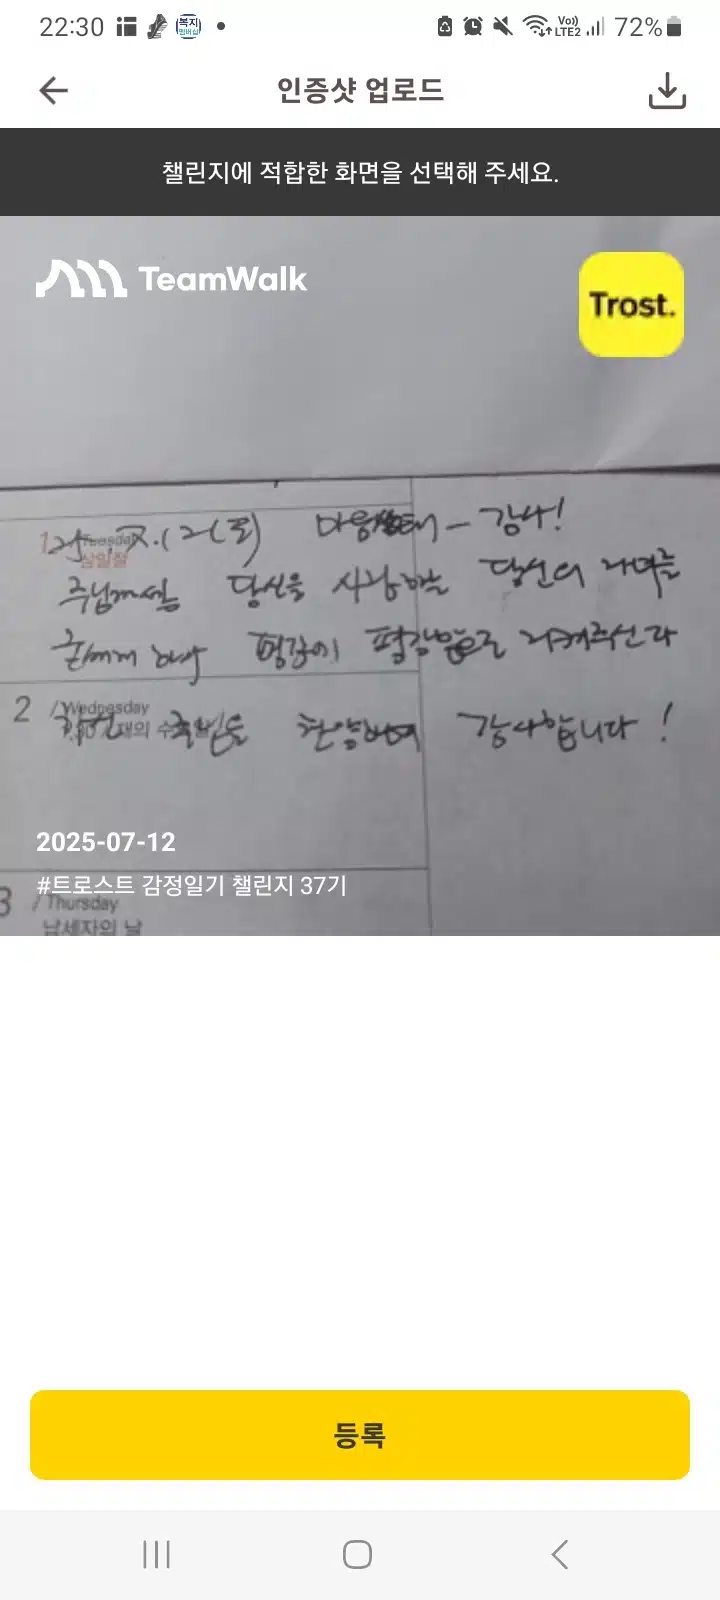 22:30
복지
멤버십
Vo))
LTE2
72%
인증샷 업로드
챌린지에 적합한 화면을 선택해 주세요.
TeamWalk
Trost.
1 Tuesday
삼일절
25. 7. 12(토) 마음상태 - 감사!
주님께서는 당신을 사랑하는 당신의 자녀를
평강에 평강으로 지켜주신다
2 / Wednesday
주님을 찬양하며 감사합니다!
2025-07-12
#트로스트 감정일기 챌린지 37기
3 / Thursday
납세자의 날
등록